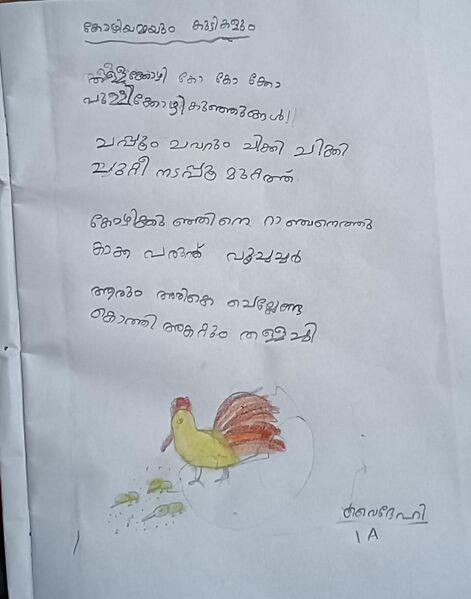 കോഴിയമ്മയും കുട്ടികളും
തള്ളക്കോഴി കോ കോ ക്കോ
പുള്ളിക്കോഴി കുഞ്ഞുങ്ങൾ!!
ചപ്പും ചവറും ചിക്കി ചിക്കി
ചുറ്റി നടപ്പൂ മുറ്റത്ത്
കോഴിക്കുഞ്ഞിനെ റാഞ്ചനെത്തു
കാക്ക പരുന്ത് പൂച്ചച്ചർ
ആരും അരികെ ചെല്ലേണ്ട
കൊത്തി അകറ്റും തള്ളച്ചി
വൈദേഹി
1 A